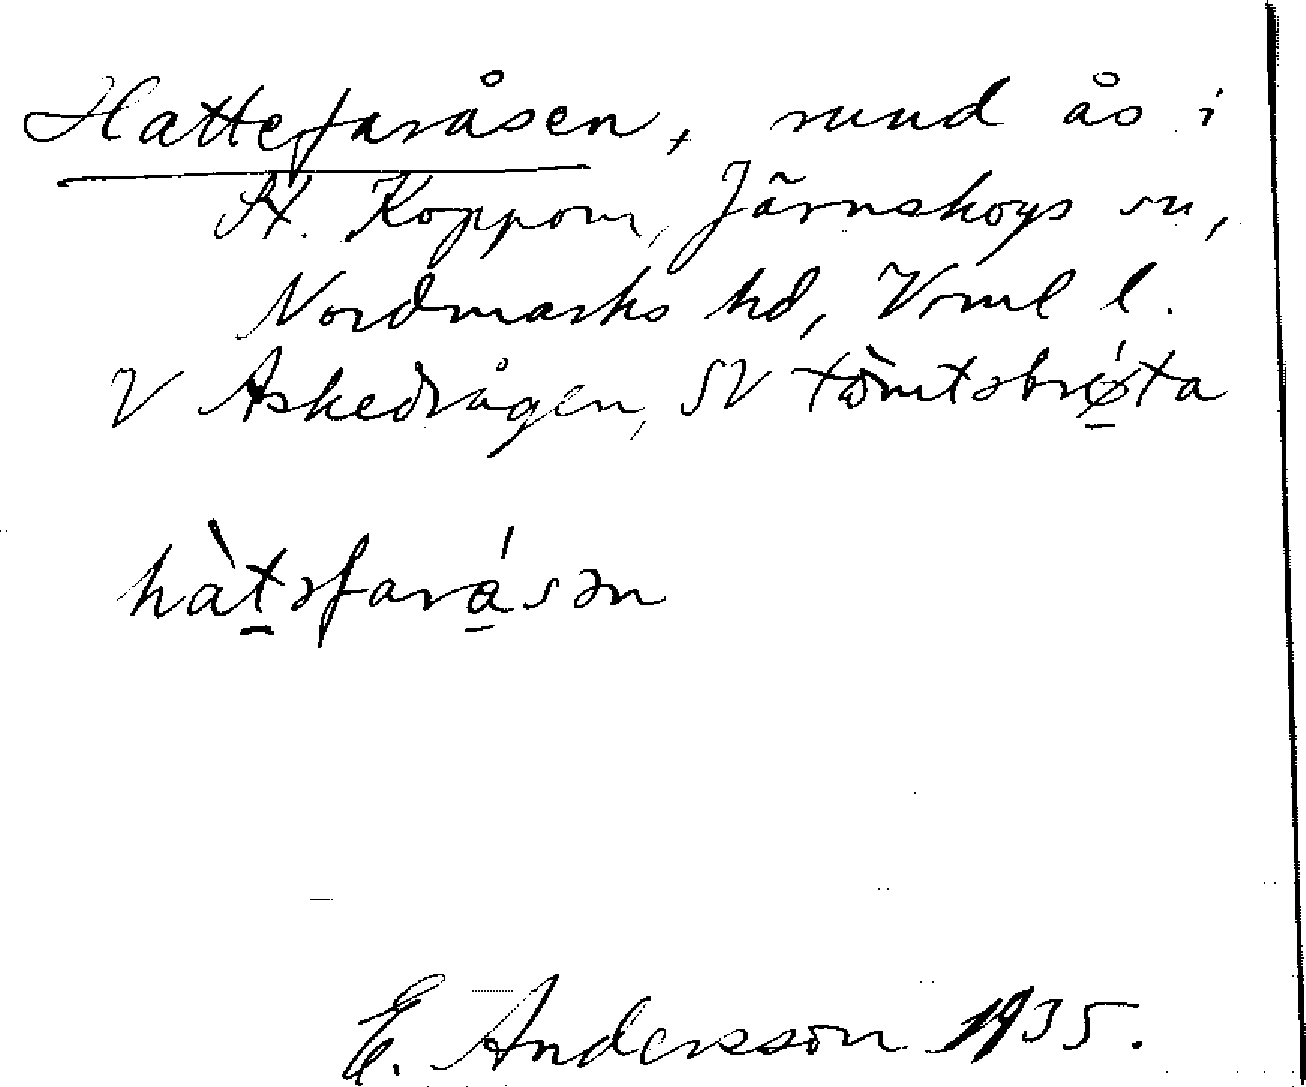 Hattefaråsen, rund ås i
St. Koppom, Järnskogs sn,
Nordmarks hd, Vrml l.
V Askedrågen, SV tòmtəbrǿ̱sta
hàṯəfará̱sən
E. Andersson 1935.